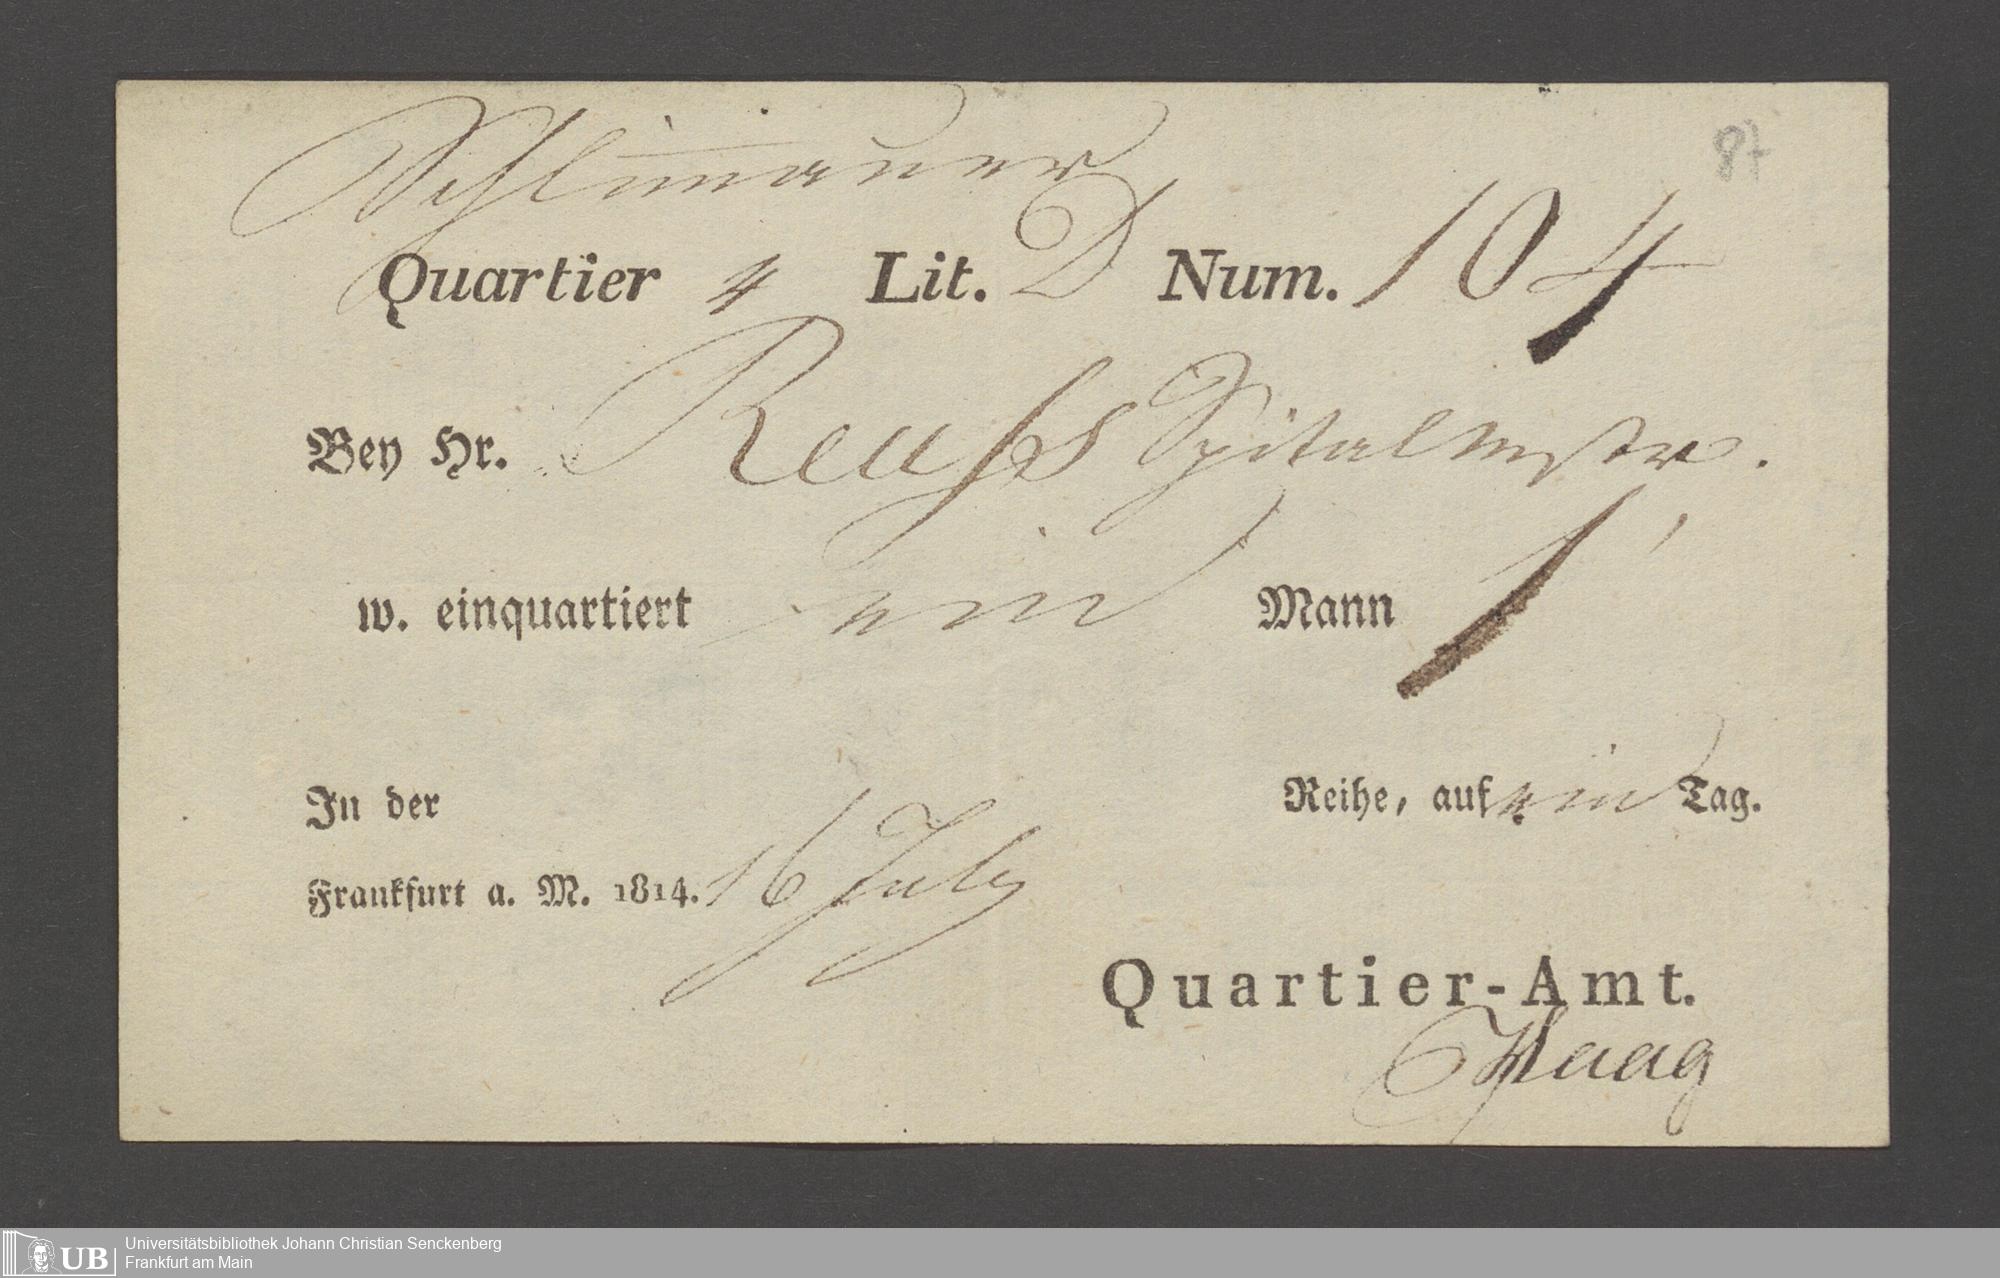 87
Quartier 4 Lit. D Num. 104
Bey Hr. Reuss Spitalmstr.
w. einquartiert ein Mann 1
In der Reihe, auf ein Tag.
Frankfurt a. M. 1814. 16 July
Quartier-Amt.
Haag
UB
Universitätsbibliothek Johann Christian Senckenberg
Frankfurt am Main